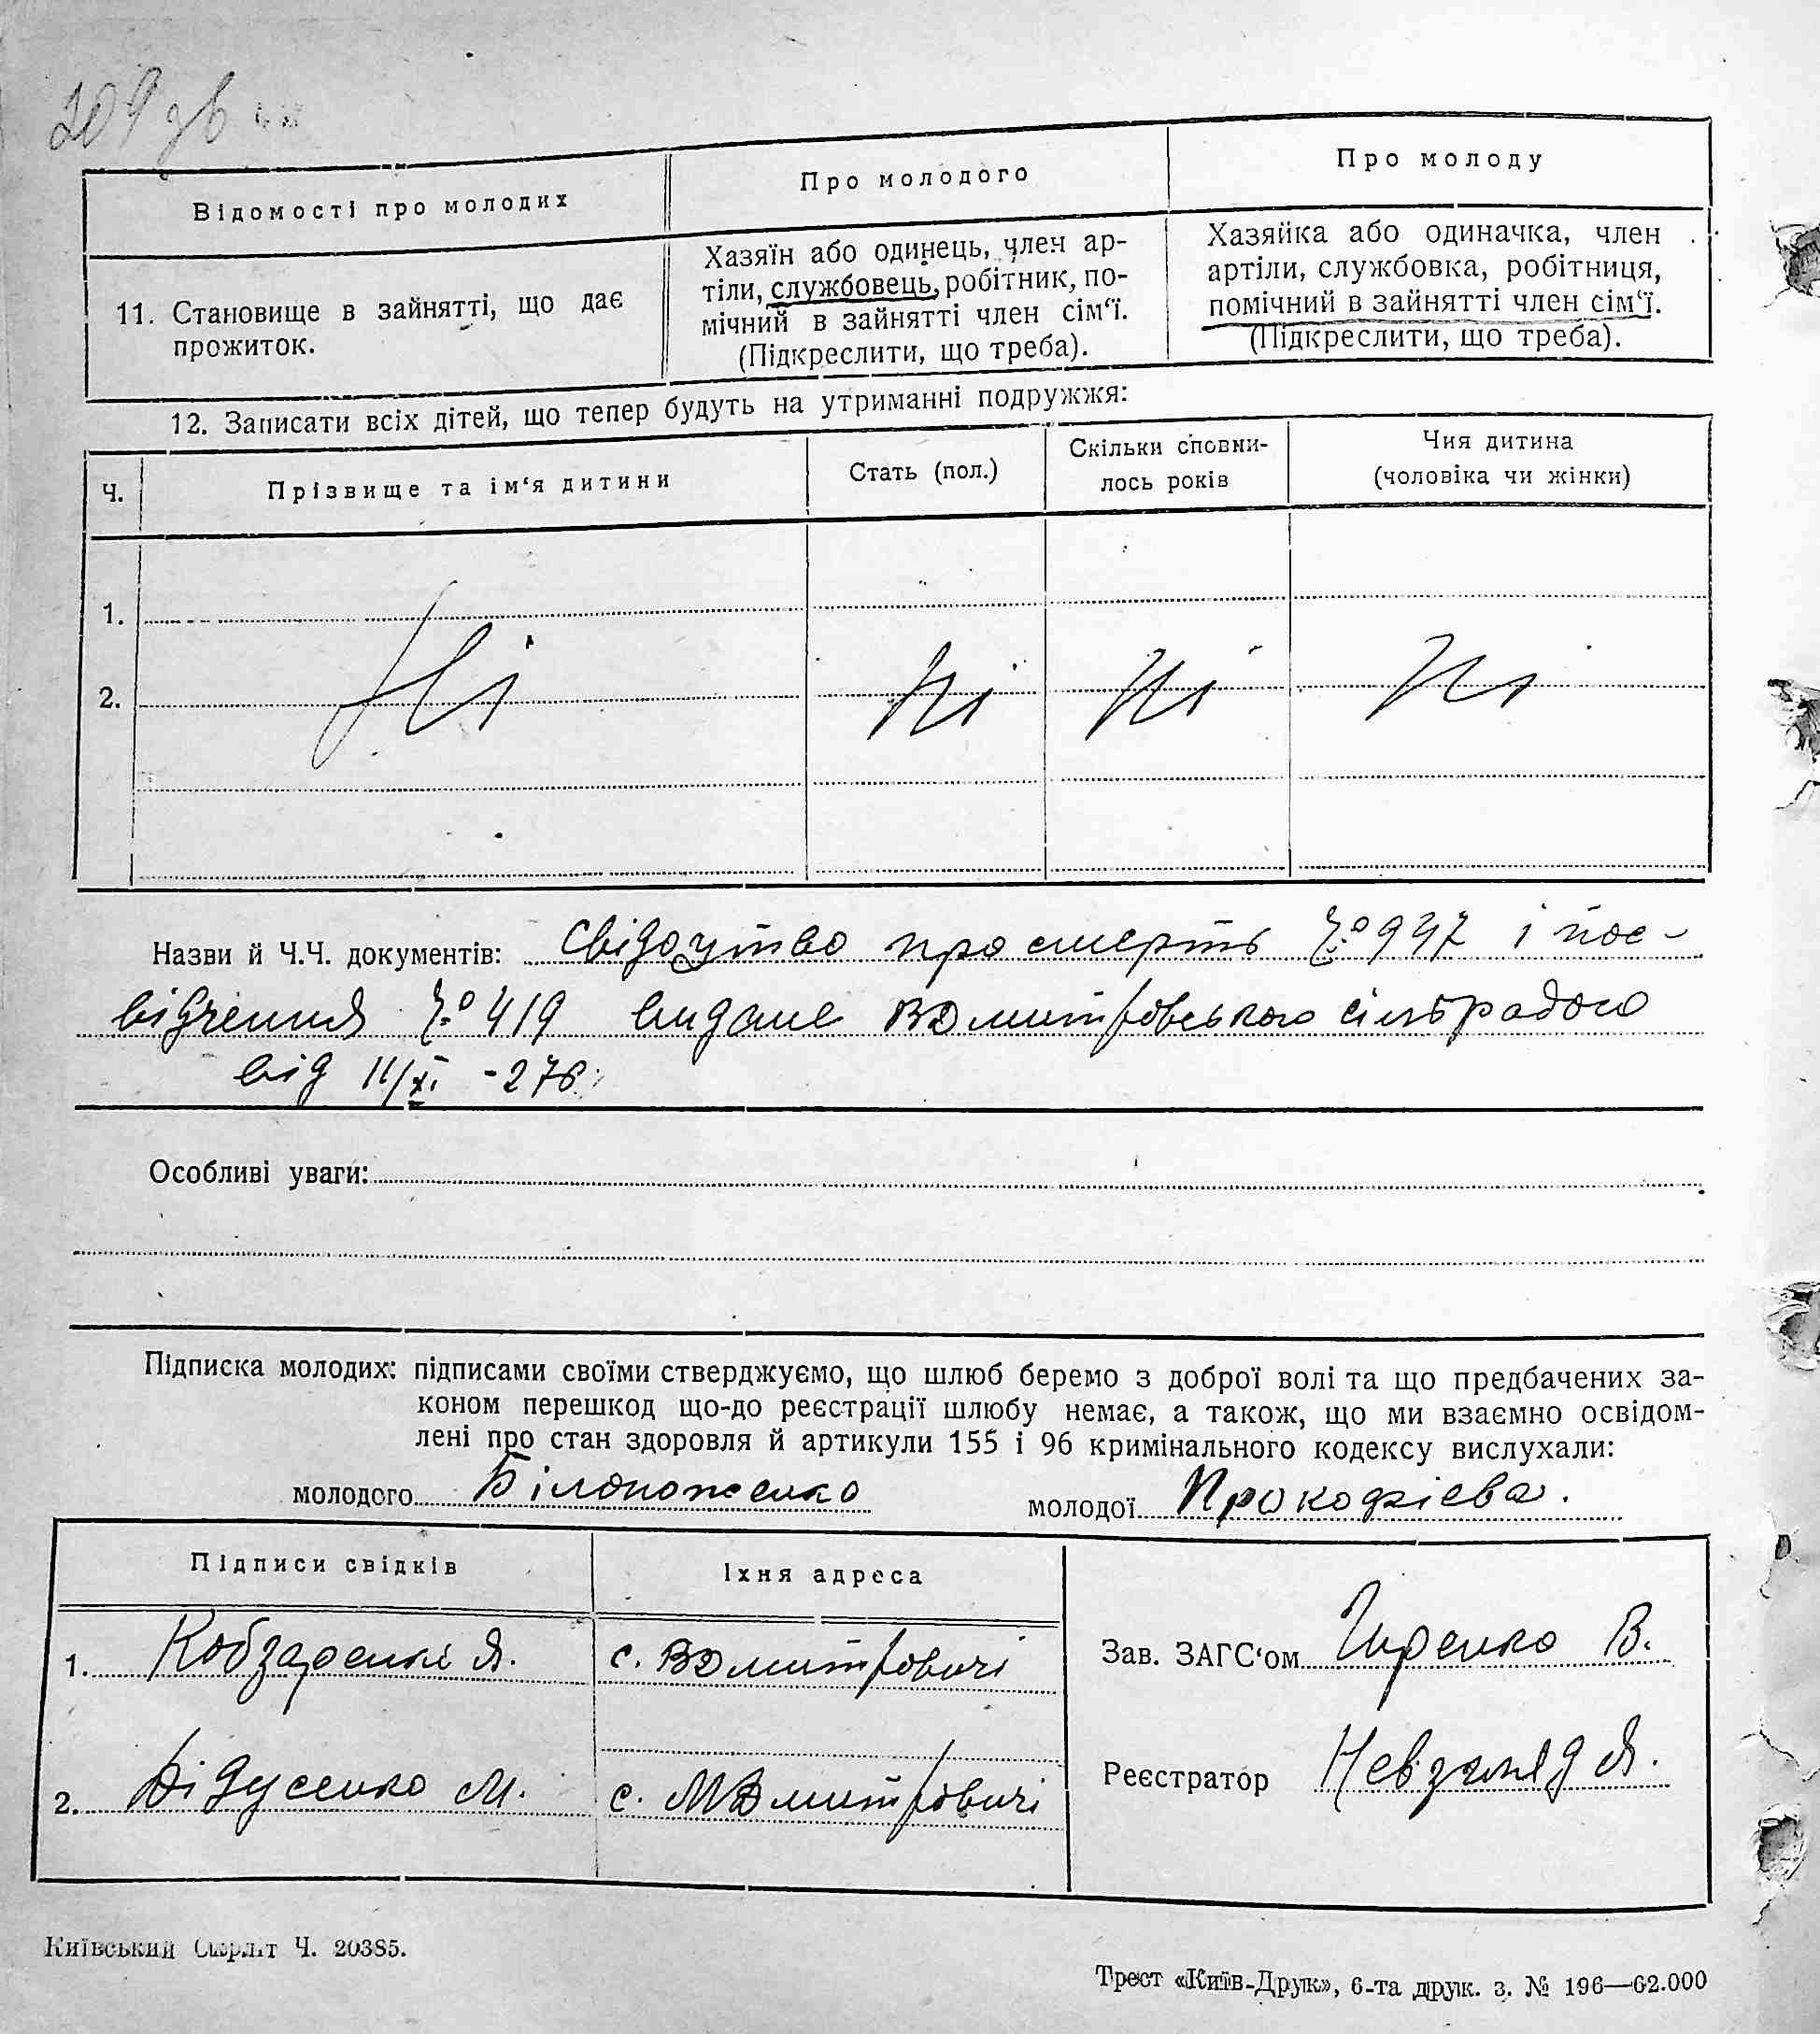 209 зв
Відомості про молодих
Про молодого
Про молоду
11. Становище в зайнятті, що дає
прожиток.
Хазяїн або одинець, член ар-
тіли, службовець, робітник, по-
мічний в зайнятті член сім‘ї.
(Підкреслити, що треба).
Хазяйка або одиначка, член
артіли, службовка, робітниця,
помічний в зайнятті член сім‘ї.
(Підкреслити, що треба).
12. Записати всіх дітей, що тепер будуть на утриманні подружжя:
Ч.
Прізвище та ім‘я дитини
Стать (пол.)
Скільки сповни-
лось років
Чия дитина
(чоловіка чи жінки)
1.
2. Ні Ні Ні Ні
Назви й Ч.Ч. документів: Свідоцтво про смерть Ч.о 997 і пос-
відчення Ч.о 419 видане ВДмитровською сільрадою
від 11/XI - 27р.
Особливі уваги:
Підписка молодих: підписами своїми стверджуємо, що шлюб беремо з доброї волі та що предбачених за-
коном перешкод що-до реєстрації шлюбу немає, а також, що ми взаємно освідом-
лені про стан здоровля й артикули 155 і 96 кримінального кодексу вислухали:
молодого Білоноженко молодої Прокофієва.
Підписи свідків
Їхня адреса
1. Кобзаренко Я. с. ВДмитровичі
2. Дідусенко М. с. МДмитровичі
Зав. ЗАГС‘ом Гиренко В.
Реєстратор Невзгляд Я.
Київський Окрліт Ч. 20385.
Трест «Київ-Друк», 6-та друк. з. № 196—62.000